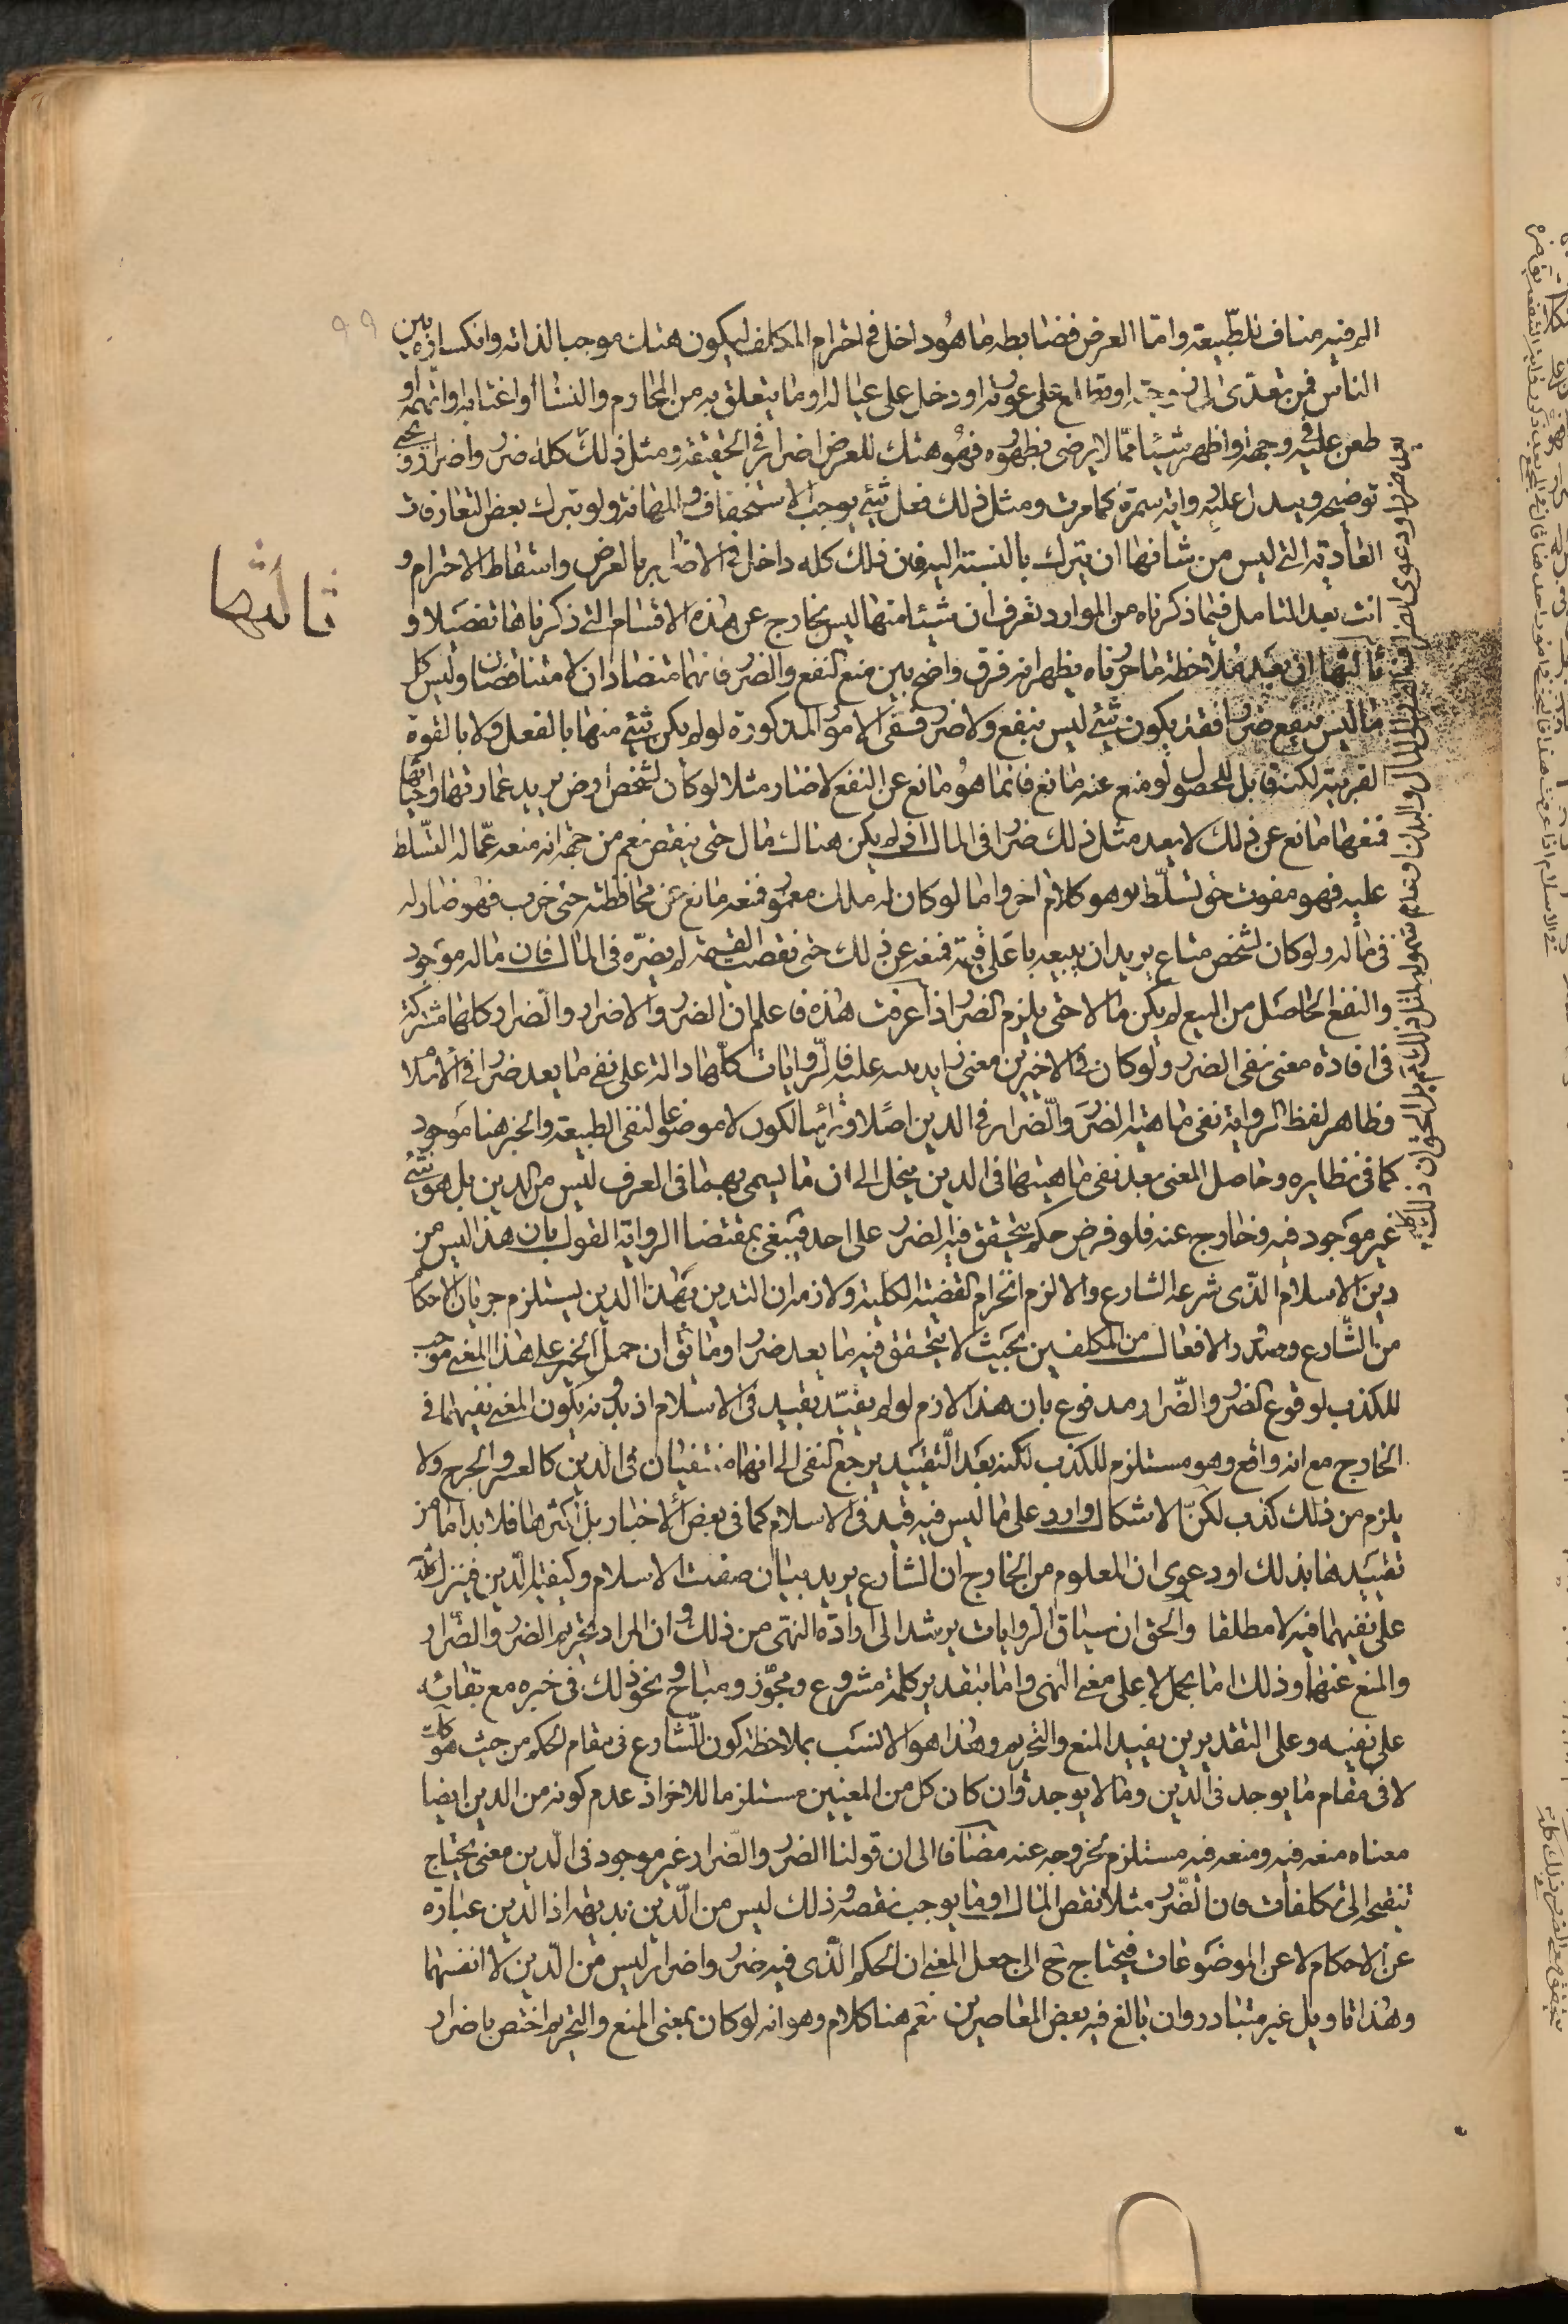 ٩٩
اليه فيه مناف للطبيعة واما العرض فضابطه ما هو داخل في احترام المكلف ليكون هتك موجبا لذلته وانكساره بين
الناس فمن تعدى الى زوجته او تطلع على عورته او دخل على عياله او ما يتعلق به من المحارم والنساء او اغتابه او اتهمه او
طعن عليه في وجهه او اظهر شيئا مما لا يرضى بظهوره فهو هتك للعرض اضرار في الحقيقة ومثل ذلك كله ضرر واضرار ويجئ
توضيحه ويدل عليه رواية سمرة كما مرت ومثل ذلك فعل شئ يوجب الاستخفاف والمهانة ولو بترك بعض التعارفات
العادية التي ليس من شانها ان يترك بالنسبة اليه فان ذلك كله داخل في الاضرار بالعرض واسقاط الاحترام و
انت بعد التامل فيما ذكرناه من الموارد تعرف ان شيئا منها ليس بخارج عن هذه الاقسام التي ذكرناها تفصيلا و
ثالثها
ثالثها ان بعد ملاحظة ما حررناه يظهر انه فرق واضح بين منع النفع والضرر فانهما متضادان لا متناقضان وليس كل
ما ليس بنفع ضررا فقد يكون شئ ليس بنفع ولا ضرر ففى الامور المذكورة لو لم يكن شئ منها بالفعل ولا بالقوة
القريبة لكنه قابل للحصول لو منع عنه مانع فانما هو مانع عن النفع لا ضار مثلا لو كان لشخص ارض يريد عمارتها واحيائها
فمنعها مانع عن ذلك لا يعد مثل ذلك ضررا في المال اذ لم يكن هناك مال حتى ينقص نعم من جهة انه منعه عما له التسلط
عليه فهو مفوت حق تسلط وهو كلام اخر واما لو كان له ملك معمور فمنعه مانع عن محافظته حتى خرب فهو ضار له
في ماله ولو كان لشخص متاع يريد ان يبيعه باعلى قيمة فمنعه عن ذلك حتى نقصت القيمة لم يضره في المال فان ماله موجود
والنفع الحاصل من البيع لم يكن مالا حتى يلزم الضرر اذا عرفت هذه فاعلم ان الضرر والاضرار والضرار كلها مشتركة
في افادة معنى نفى الضرر ولو كان في الاخيرين معنى زايد عليه فالروايات كلها دالة على نفى ما يعد ضررا في الاسلام
فظاهر لفظ الرواية نفى ماهية الضرر والضرار في الدين اصلا وراسا لكون لا موضوعا لنفى الطبيعة والخبر هنا موجود
كما في نظايره وحاصل المعنى بعد نفى ماهيتها في الدين ينحل الى ان ما يسمى بهما في العرف ليس من الدين بل هو شئ
غير موجود فيه وخارج عنه فلو فرض حكم يتحقق فيه الضرر على احد فينبغى بمقتضا الرواية القول بان هذا ليس من
دين الاسلام الذى شرعه الشارع والا لزم انخرام القضية الكلية ولازمه ان التدين بهذا الدين يستلزم جريان الاحكام
من الشارع وصدور الافعال من المكلفين بحيث لا يتحقق فيه ما يعد ضررا وما يق ان حمل الخبر على هذا المعنى موجب
للكذب لوقوع الضرر والضرار مدفوع بان هذا لازم لو لم يقيد بقيد في الاسلام اذ بدونه يكون المعنى نفيهما في
الخارج مع انه واقع وهو مستلزم للكذب لكنه بعد التقييد يرجع النفى الى انهما منتفيان في الدين كالعسر والحرج ولا
يلزم من ذلك كذب لكن الاشكال وارد على ما ليس فيه قيد في الاسلام كما في بعض الاخبار بل اكثرها فلا بد اما من
تقييدها بذلك او دعوى ان المعلوم من الخارج ان الشارع يريد بيان صفة الاسلام وكيفية الدين فينزل اللفظ
على نفيهما فيه لا مطلقا والحق ان سياق الروايات يرشد الى ارادة النهى من ذلك وان المراد تحريم الضرر والضرار
والمنع عنهما وذلك اما بحمل لا على معنى النهى واما بتقدير كلمة مشروع ومجوز ومباح ونحو ذلك في خبره مع بقائه
على نفيه وعلى التقديرين يفيد المنع والتحريم وهذا هو الانسب بملاحظة كون الشارع في مقام الحكم من حيث هو كك
لا في مقام ما يوجد في الدين وما لا يوجد وان كان كل من المعنيين مستلزما للاخر اذ عدم كونه من الدين ايضا
معناه منعه فيه ومنعه فيه مستلزم لخروجه عنه مضافا الى ان قولنا الضرر والضرار غير موجود في الدين معنى يحتاج
تنقيحه الى تكلفات فان الضرر مثلا نقص المال او ما يوجب نقصه وذلك ليس من الدين بديهة اذ الدين عبارة
عن الاحكام لا عن الموضوعات فيحتاج ح الى جعل المعنى ان الحكم الذى فيه ضرر واضرار ليس من الدين لا انفسهما
وهذا تاويل غير متبادر وان بالغ فيه بعض المعاصرين نعم هنا كلام وهو انه لو كان بمعنى المنع والتحريم اختص باضرار